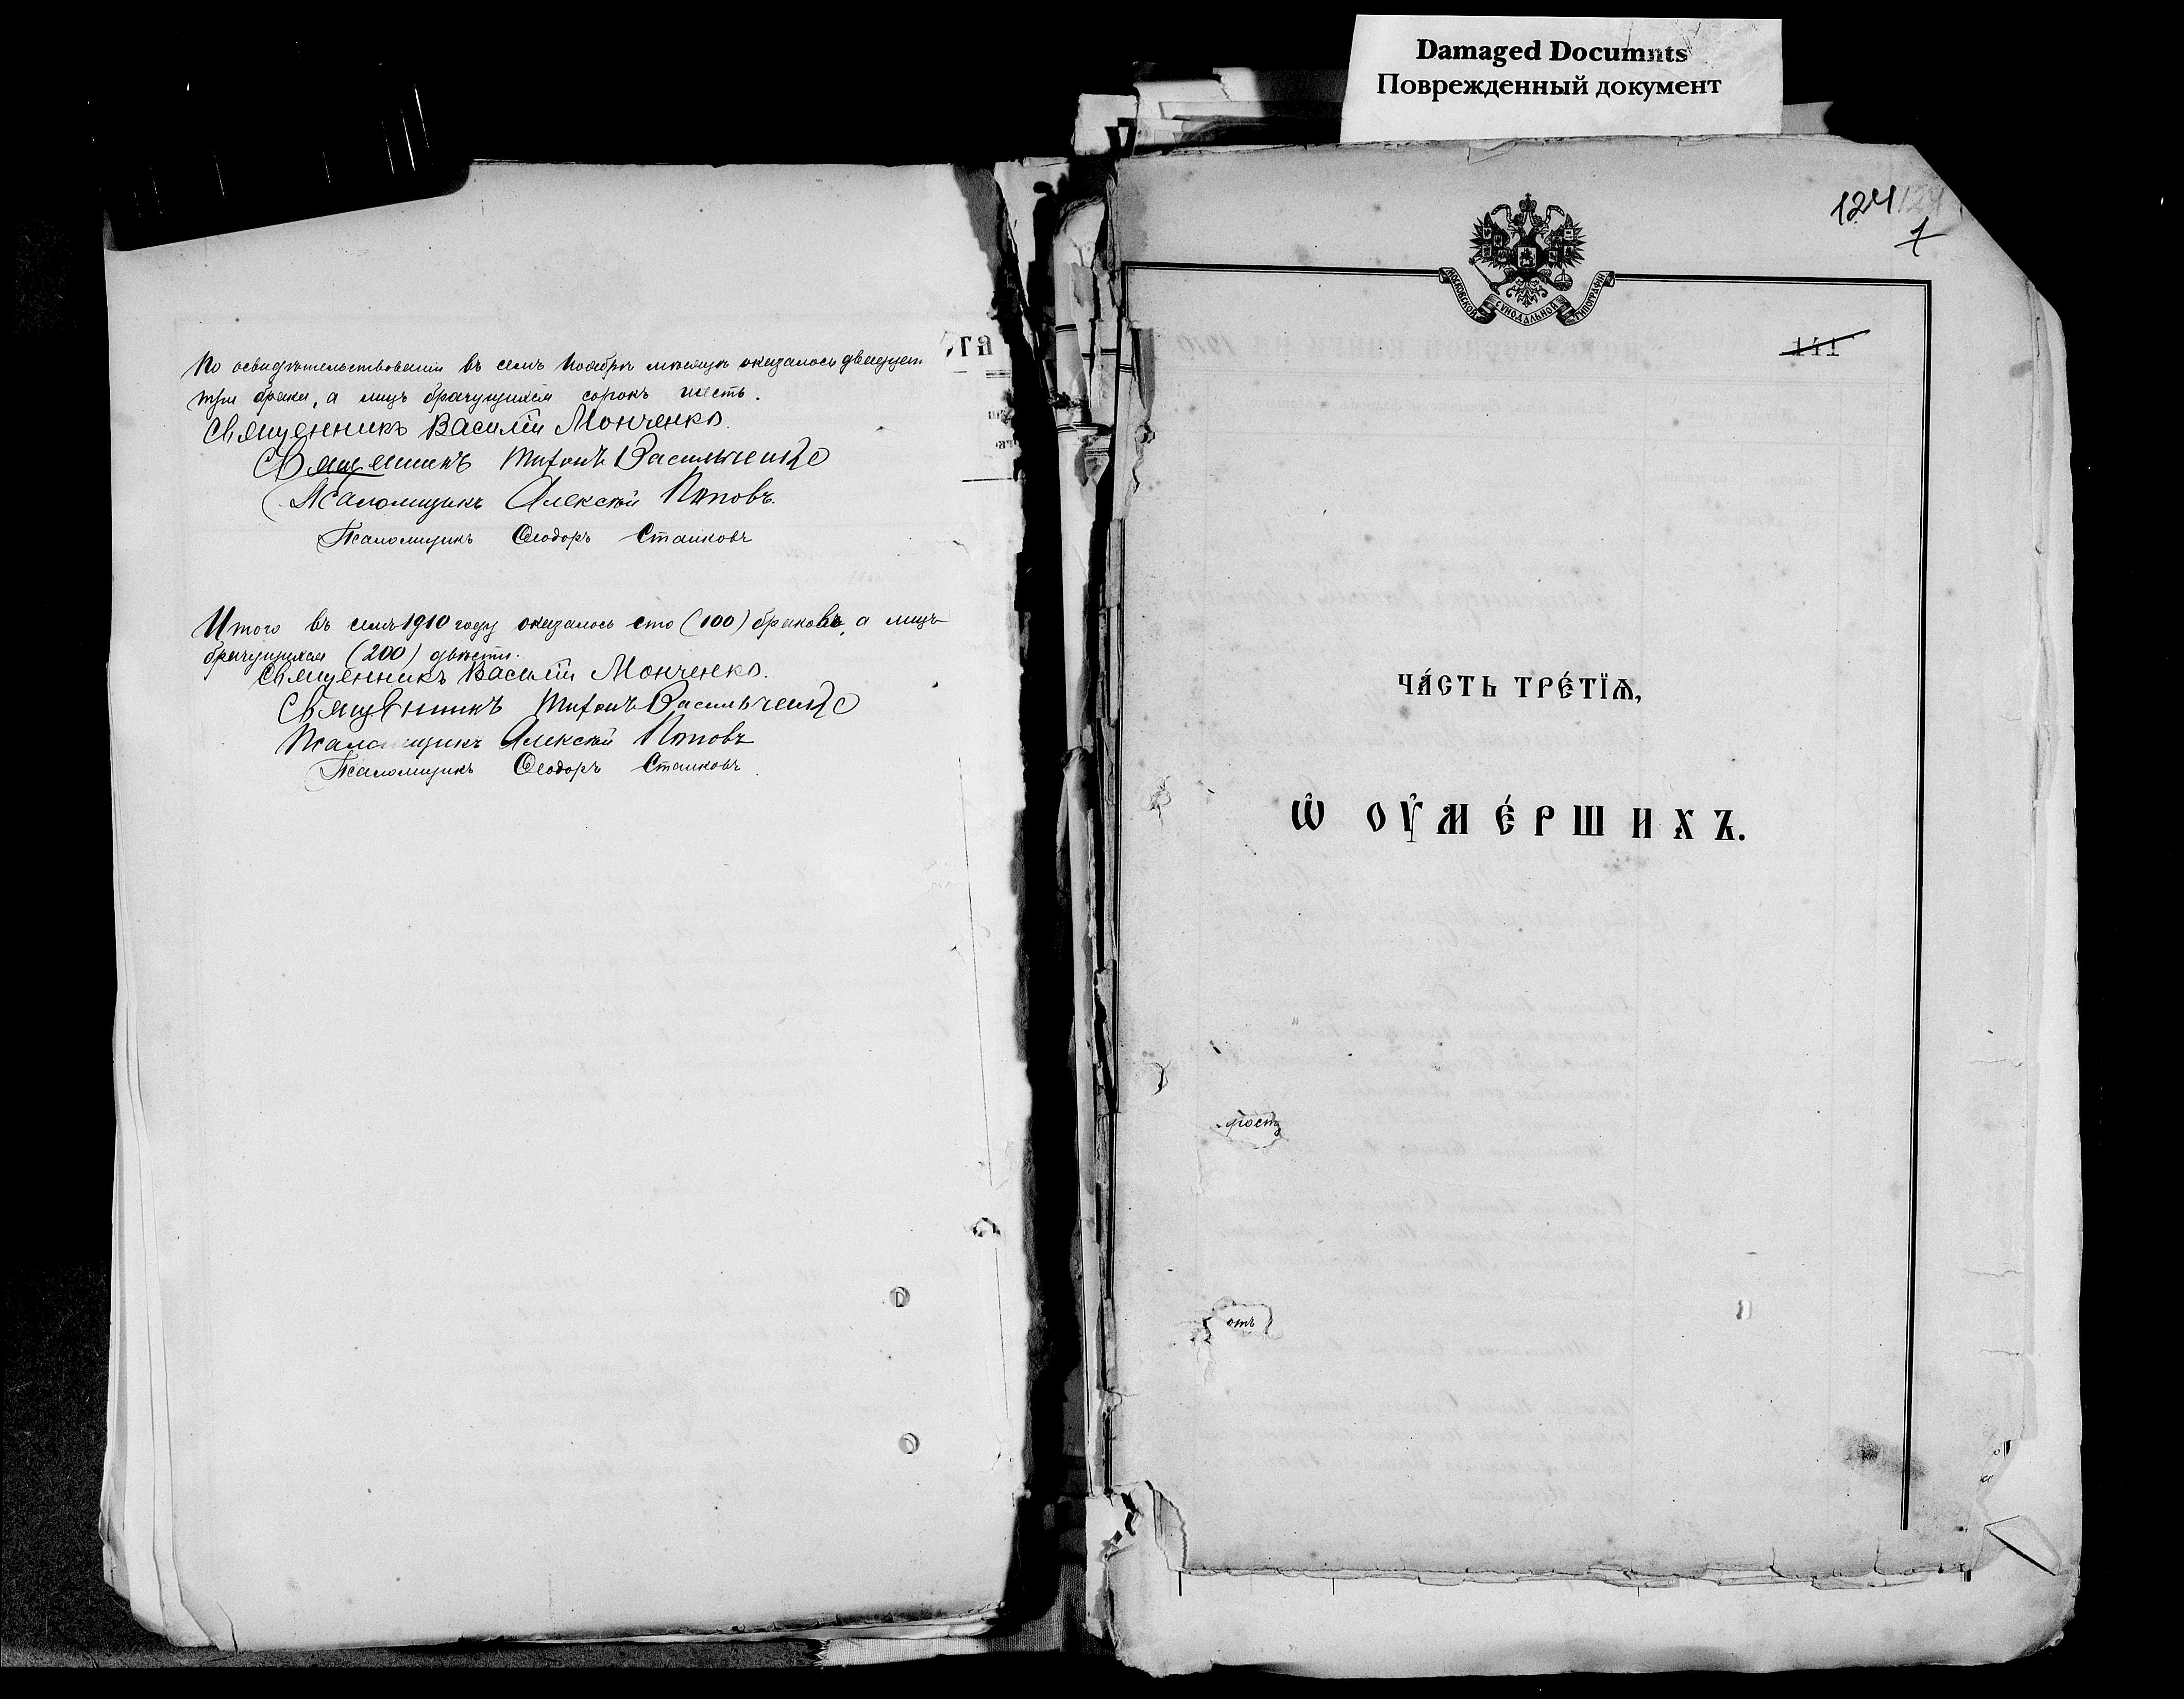 Damaged Documnts
Поврежденный документ
По освидѣтельствованiи въ семъ Ноябрѣ мѣсяцѣ оказалось двадцат
три брака, а лицъ брачущихся сорокъ шесть.
Священникъ Василiй Монченко.
Священникъ Тихонъ Васильченко
Псаломщикъ Алексѣй Поповъ.
Псаломщикъ Ѳеодоръ Станковъ
Итого въ семъ 1910 году оказалось сто (100) браковъ, а лицъ
брачущихся (200) двѣсти.
Священникъ Василiй Монченко.
Священникъ Тихонъ Васильченко
Псаломщикъ Алексѣй Поповъ
Псаломщикъ Ѳеодоръ Станковъ
та
124 124
1
МОСКОВСКОЙ СѴНОДАЛЬНОЙ ТИПОГРАФІИ
141
ЧА́СТЬ ТРЕ́ТЇѦ,
Ѡ҆ ОУ҆МЕ́РШИХЪ.
отъ